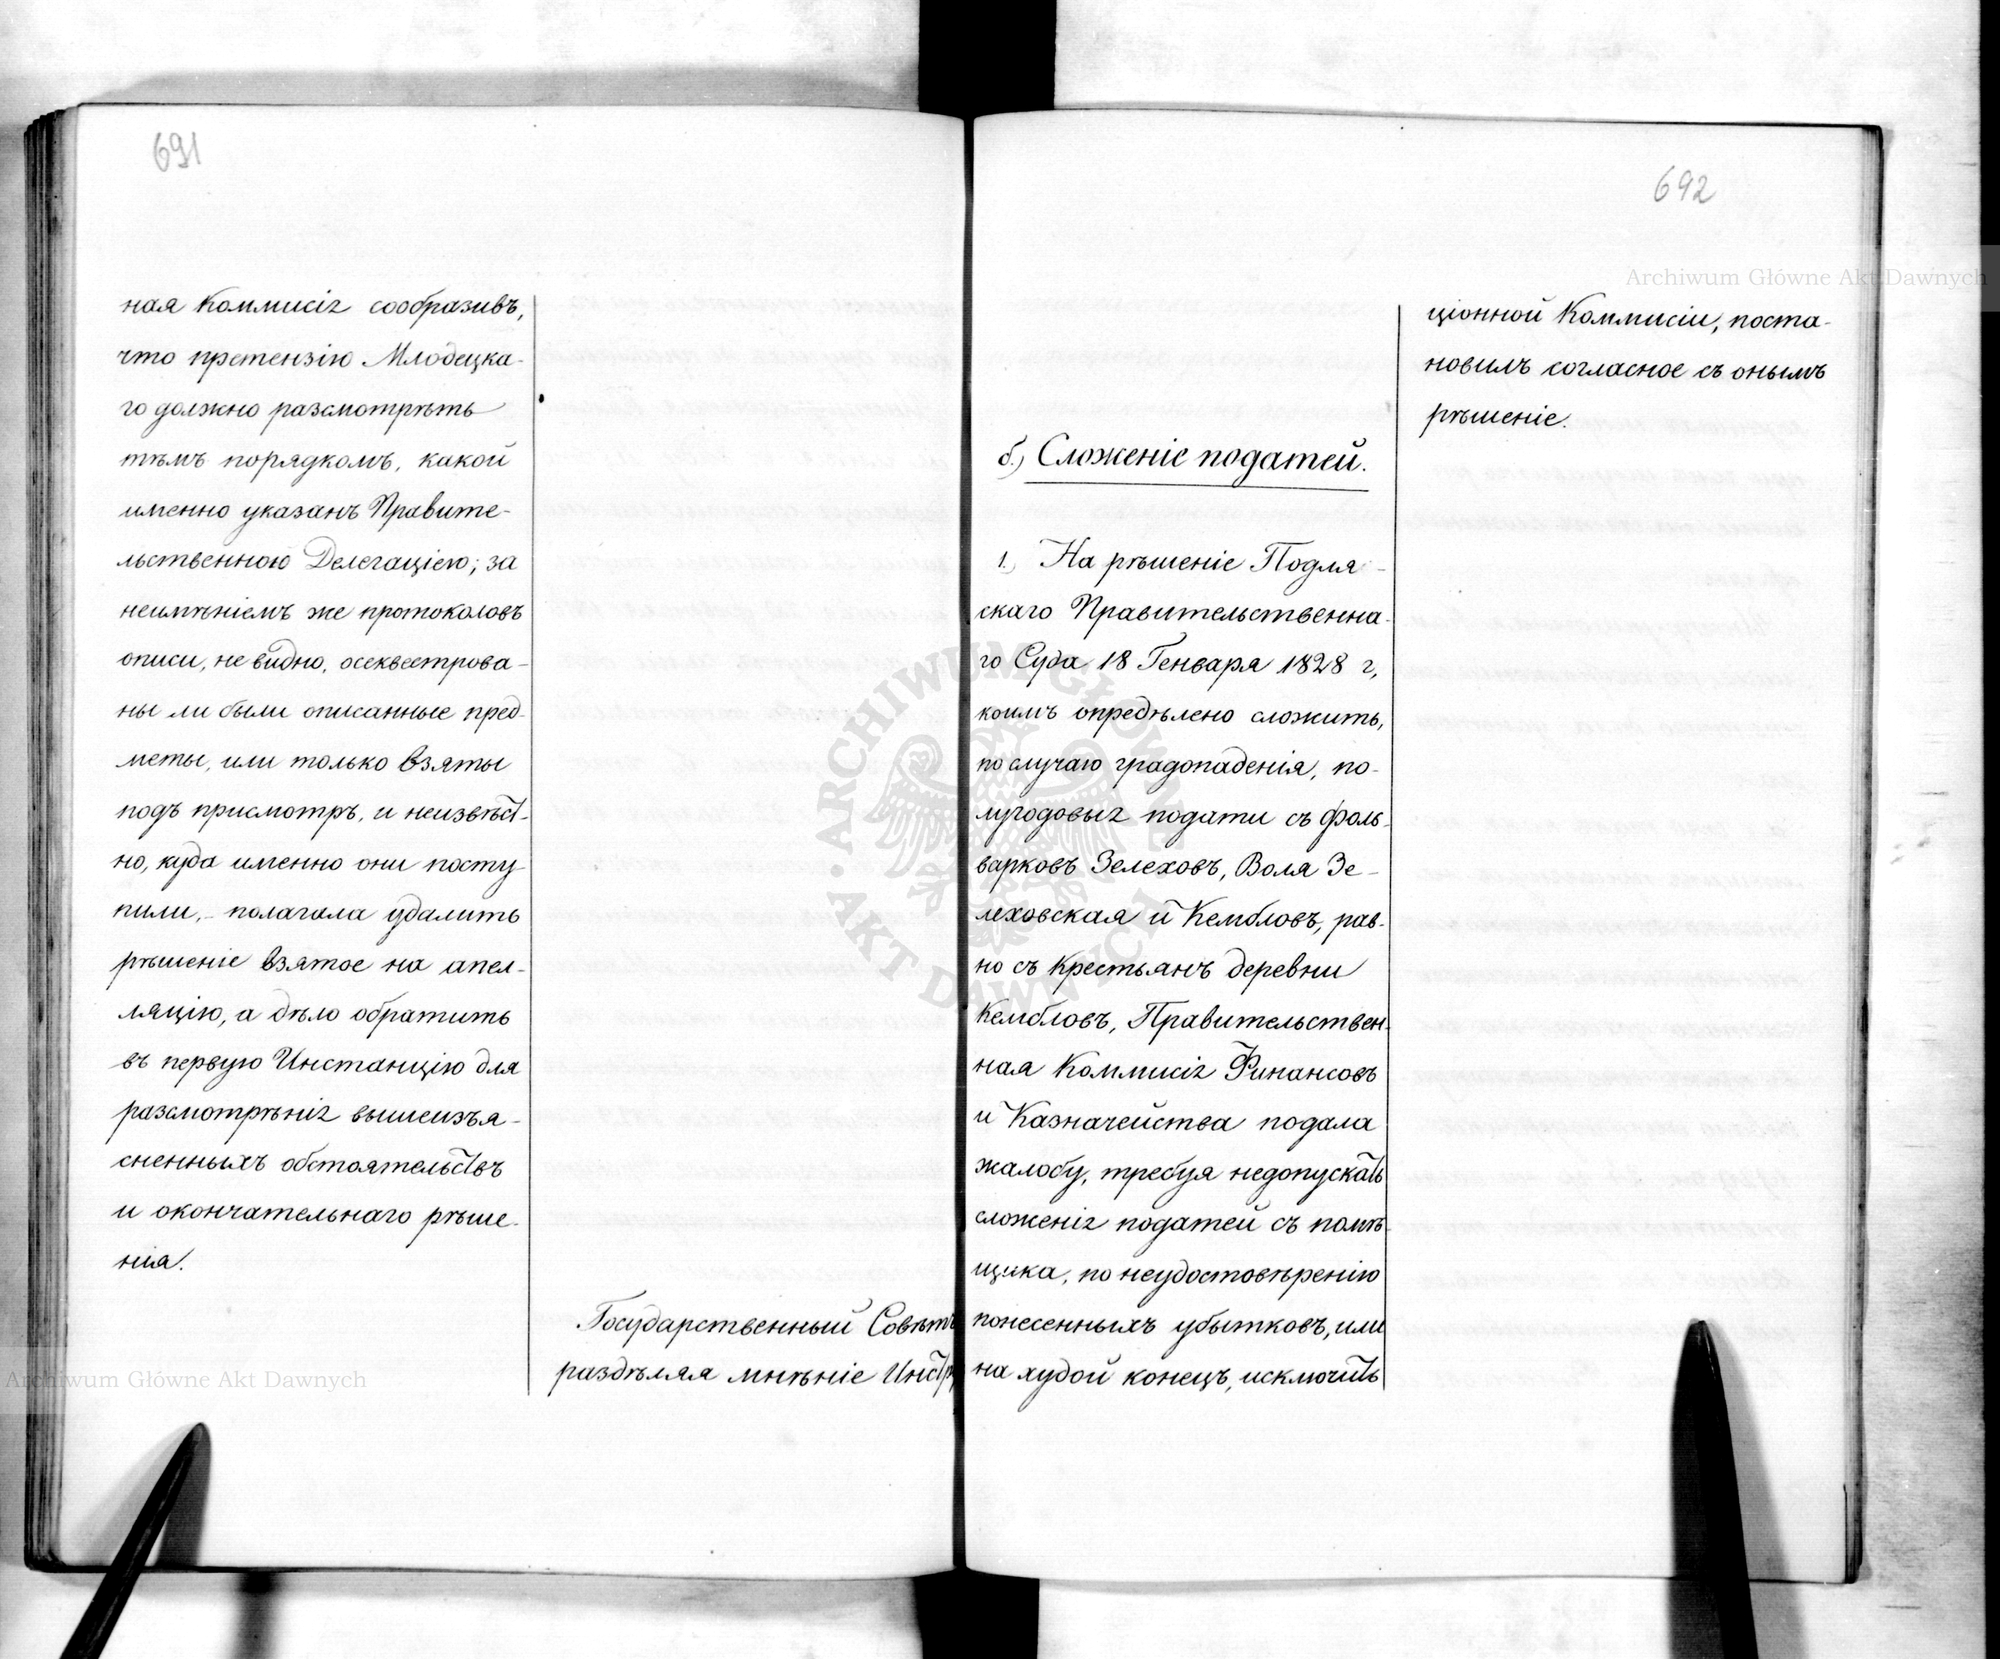 691
ная Коммисія сообразивъ,
что претензію Млодецка-
го должно разсмотрѣть
тѣмъ порядкомъ, какой
именно указанъ Правите-
льственною Делегаціею; за
неимѣніемъ же протоколовъ
описи, не видно, осеквестрова-
ны ли были описанные пред-
меты, или только взяты
подъ присмотръ, и неизвѣст-
но, куда именно они посту-
пили, - полагала удалить
рѣшеніе взятое на апел-
ляцію, а дѣло обратить
въ первую Инстанцію для
разсмотрѣнія вышеизъя-
сненныхъ обстоятельствъ
и окончательнаго рѣше-
нія.
Государственный Совѣтъ
раздѣляя мнѣніе Инстру
692
б.) Сложеніе податей.
1.) На рѣшеніе Подля-
скаго Правительственна-
го Суда 18 Генваря 1828 г,
коимъ опредѣлено сложить,
по случаю градопаденія, по-
лугодовыя подати съ фоль-
варковъ Зелеховъ, Воля Зе-
леховская и Кембловъ, рав-
но съ крестьянъ деревни
Кембловъ, Правительствен-
ная Коммисія Финансовъ
и Казначейства подала
жалобу, требуя недопускать
сложенія податей съ помѣ-
щика, по неудостовѣренію
понесенныхъ убытковъ, или
на худой конецъ, исключить
ціонной Коммисіи, поста-
новилъ согласное съ онымъ
рѣшеніе.
Archiwum Główne Akt Dawnych
Archiwum Główne Akt Dawnych
ARCHIWUM GŁÓWNE · AKT DAWNYCH ·